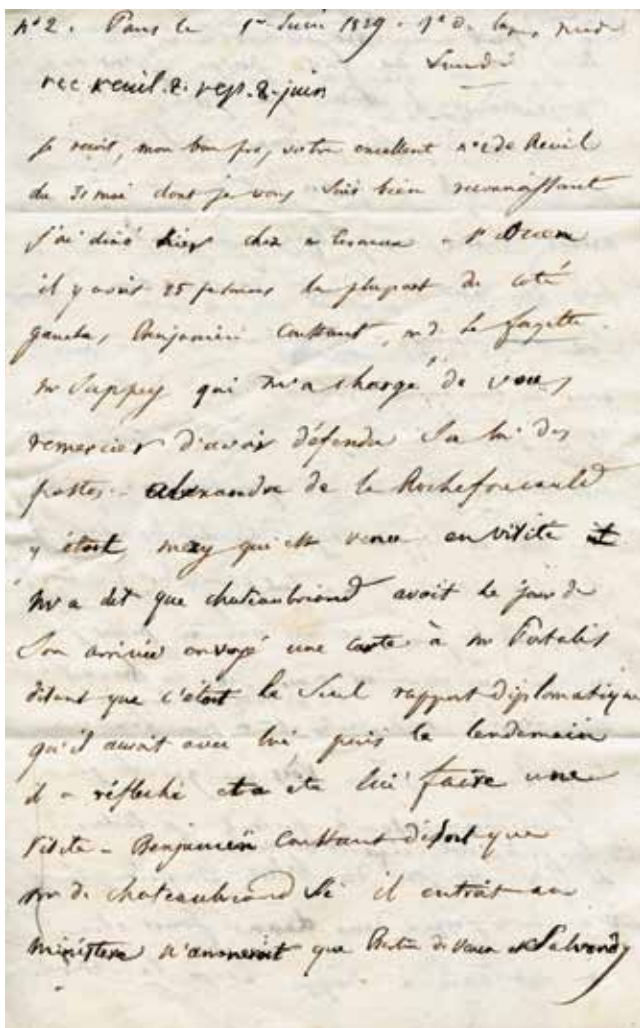 n° 2. Paris le 1er Juin 1829.
Lundi
rec Reuil. 2. rep. 8. juin
je reçois, mon bon , votre excellent n° 2 de Reuil
du 31 mai dont je vous suis bien reconnoissant
j'ai diné hier chez à St Ouen
il y avoit 25 personnes la plupart du coté
gauche, Benjamin Constant, md La fayette
mr Sappey qui m'a chargé de vous
remercier d'avoir défendu sa loi des
postes. alexandre de la Rochefoucauld
y étoit, mexy qui est venu en visite
m'a dit que chateaubriand avoit le jour de
son arrivée envoyé une carte à mr Portalis
disant que c'étoit le seul rapport diplomatique
qu'il auroit avec lui, puis le lendemain
il a réfléchi et a été lui faire une
visite - Benjamin Constant disoit que
mr de chateaubriand si il entroit au
ministere n'ameneroit que Bertin de vaux et Salvandy